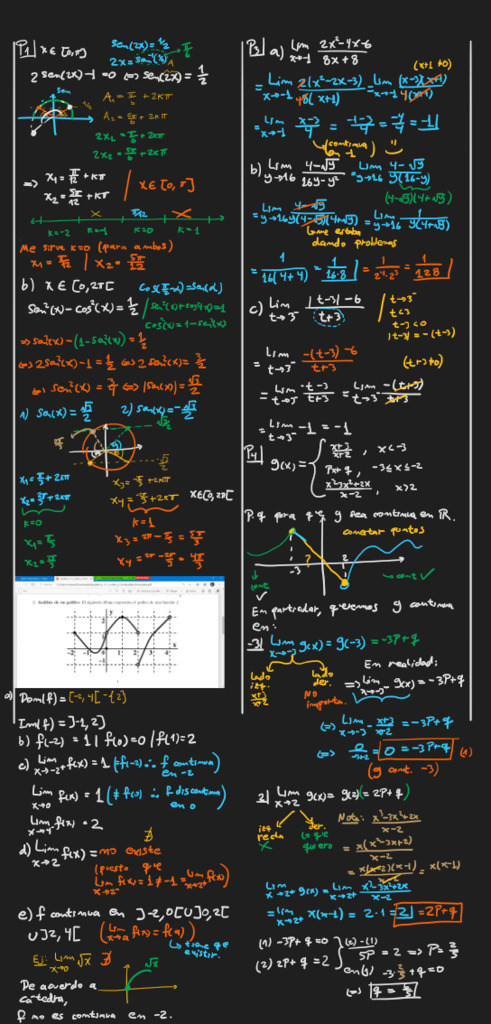 P1 x ∈ [0,π]
sen(2x) = 1/2
2x = sen⁻¹(1/2)
π/6
2 sen(2x) - 1 = 0 ⇔ sen(2x) = 1/2
sen
1/2
A₁ = π/6 + 2kπ
A₂ = 5π/6 + 2kπ
2x₁ = π/6 + 2kπ
2x₂ = 5π/6 + 2kπ
⇒ x₁ = π/12 + kπ
x₂ = 5π/12 + kπ
/ x ∈ [0,π]
k=-2 k=-1 k=0 k=1
Me sirve k=0 (para ambos)
x₁ = π/12 / x₂ = 5π/12
b) x ∈ [0,2π[
cos(π/2-α) = sen(α)
sen²(x) - cos²(x) = 1/2 / sen²(x) + cos²(x) = 1
cos²(x) = 1 - sen²(x)
⇒ sen²(x) - (1 - sen²(x)) = 1/2
⇔ 2sen²(x) - 1 = 1/2 ⇔ 2sen²(x) = 3/2
⇔ sen²(x) = 3/4 ⇔ |sen(x)| = √3/2
1) sen(x) = √3/2 2) sen(x) = -√3/2
x₁ = π/3 + 2kπ
x₂ = 2π/3 + 2kπ
k=0
x₁ = π/3
x₂ = 2π/3
x₃ = -π/3 + 2kπ
x₄ = -2π/3 + 2kπ
x ∈ [0,2π[
k=1
x₃ = 2π - π/3 = 5π/3
x₄ = 2π - 2π/3 = 4π/3
2. Análisis de un gráfico.
a) Dom(f) = [-2,4[ - {2}
Im(f) = ]-1,2]
b) f(-2) = 1 / f(0) = 0 / f(1) = 2
c) Lim x→-2⁺ f(x) = 1 (= f(-2) ∴ f continua en -2)
Lim x→0 f(x) = 1 (≠ f(0) ∴ f discontinua en 0)
Lim x→4⁻ f(x) = 2
d) Lim x→2 f(x) = no existe ∄
(puesto que
Lim x→2⁻ f(x) = 1 ≠ -1 = Lim x→2⁺ f(x))
e) f continua en ]-2,0[ U ]0,2[
U ]2,4[ (Lim x→a f(x) = f(a))
↳ tiene que existir.
Ej: Lim x→0 √x ∄
√x
De acuerdo a
cátedra,
f no es continua en -2.
P3 a) Lim x→-1 (2x²-4x-6)/(8x+8)
(x+1 ≠ 0)
= Lim x→-1 2(x²-2x-3)/(8(x+1)) = Lim x→-1 (x-3)(x+1)/(4(x+1))
= Lim x→-1 (x-3)/4 = (-1-3)/4 = -4/4 = -1
(continua en -1)
b) Lim y→16 (4-√y)/(16y-y²) = Lim y→16 (4-√y)/(y(16-y))
(4-√y)(4+√y)
= Lim y→16 (4-√y)/(y(4-√y)(4+√y)) = Lim y→16 1/(y(4+√y))
(me estaba
dando problemas
= 1/(16(4+4)) = 1/(16·8) = 1/(2⁴·2³) = 1/128
c) Lim t→3⁻ (|t-3|-6)/(t+3)
/ t→3⁻
t<3
t-3<0
|t-3| = -(t-3)
= Lim t→3⁻ (-(t-3)-6)/(t+3) (t+3≠0)
= Lim t→3⁻ (-t-3)/(t+3) = Lim t→3⁻ -(t+3)/(t+3)
= Lim t→3⁻ -1 = -1
P4 g(x) = { (x+3)/(x+2) , x<-3
px+q , -3≤x≤2
(x³-3x²+2x)/(x-2) , x>2
P.q para que g sea continua en ℝ.
conectar puntos
-3 ? 2
cont ✓
cont ✓
En particular, queremos g continua
en:
-3) Lim x→-3 g(x) = g(-3) = -3p+q
lado izq. (x+3)/(x+2)
lado der.
No importa.
En realidad:
⇒ Lim x→-3⁻ g(x) = -3p+q
⇔ Lim x→-3⁻ (x+3)/(x+2) = -3p+q
⇔ 0/(-3+2) = 0 = -3p+q (1)
(g cont. -3)
2) Lim x→2 g(x) = g(2) (= 2p+q)
izq recta ✗
der. lo que quiero
Nota: (x³-3x²+2x)/(x-2)
= x(x²-3x+2)/(x-2)
= x(x-2)(x-1)/(x-2) = x(x-1)
Lim x→2⁺ g(x) = Lim x→2⁺ (x³-3x²+2x)/(x-2)
= Lim x→2⁺ x(x-1) = 2·1 = 2 = 2p+q
(1) -3p+q = 0
(2) 2p+q = 2
(2)-(1) 5p = 2 ⇒ p = 2/5
en (1) -3·2/5 + q = 0
⇔ q = 6/5